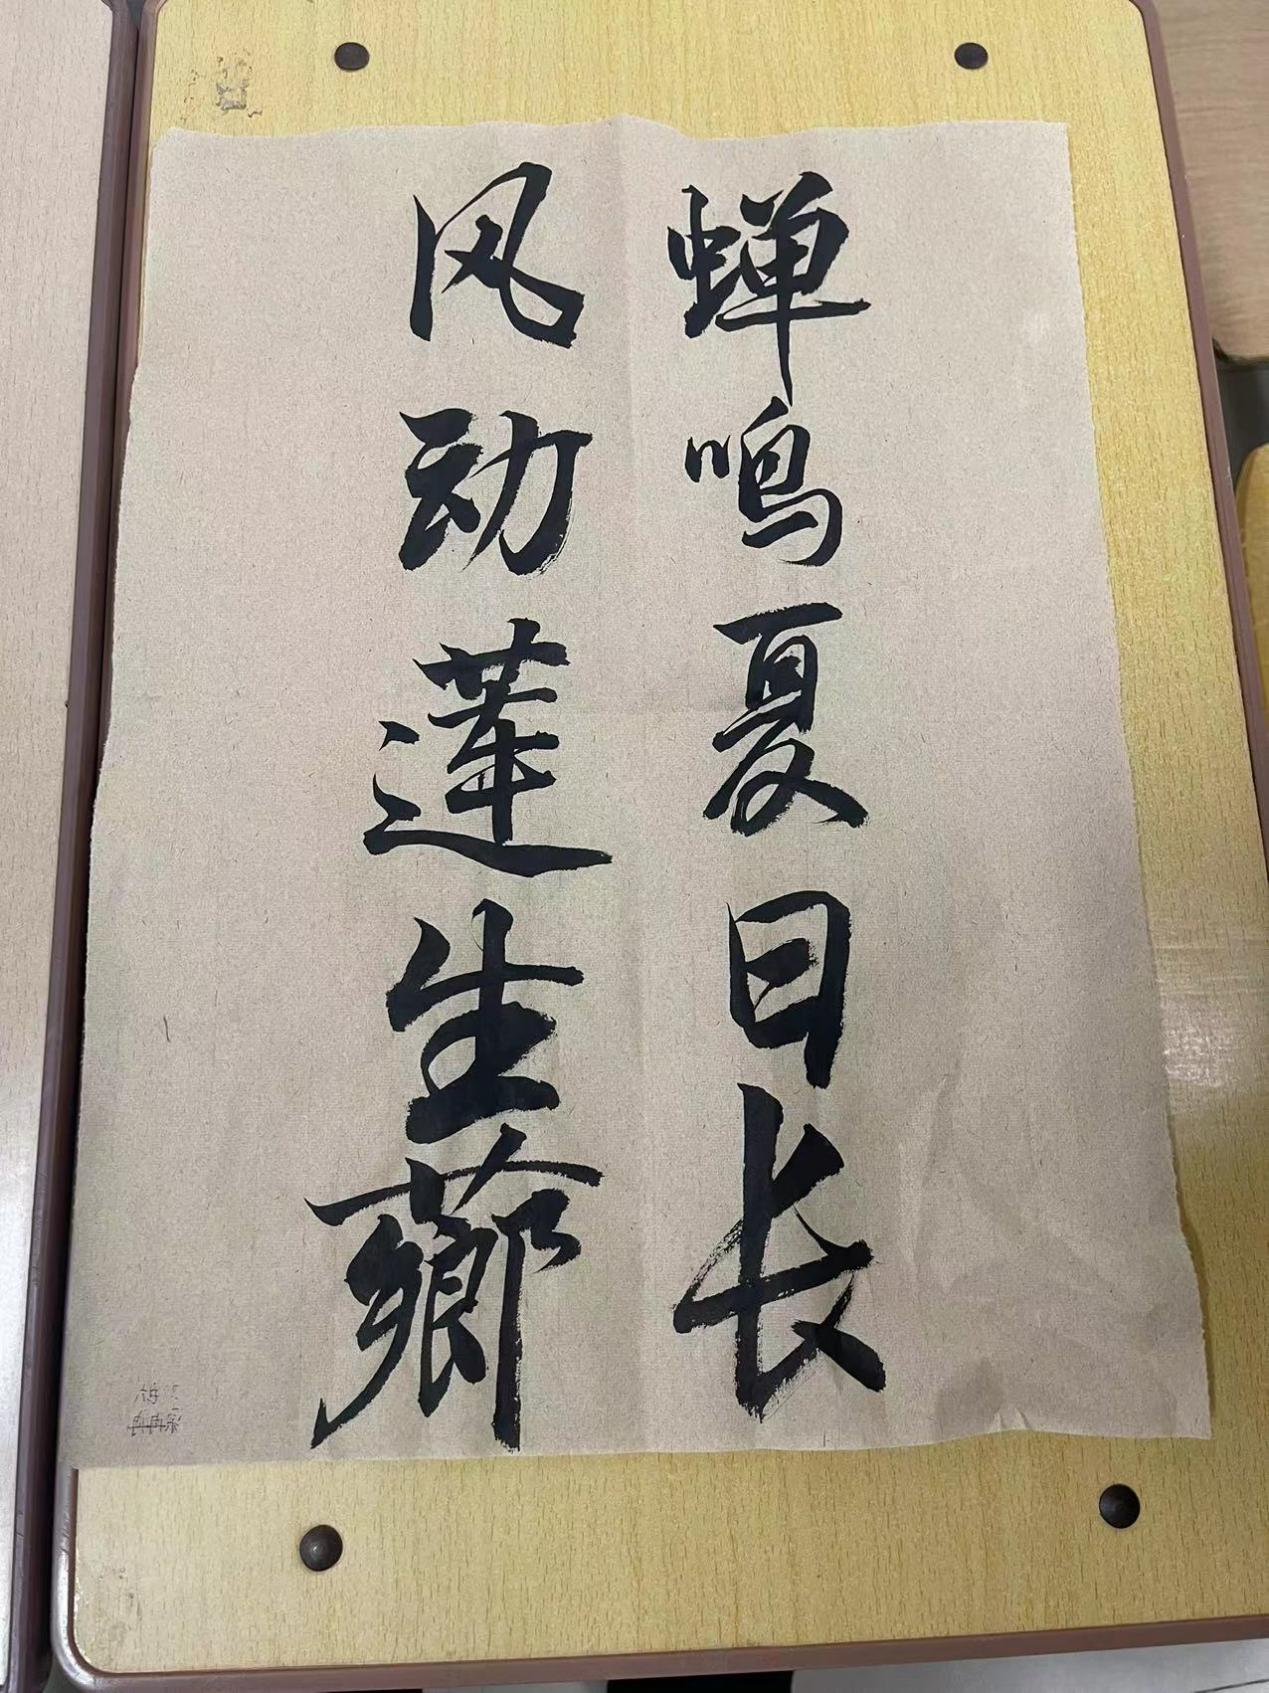 蝉鸣夏日长
风动莲生薌